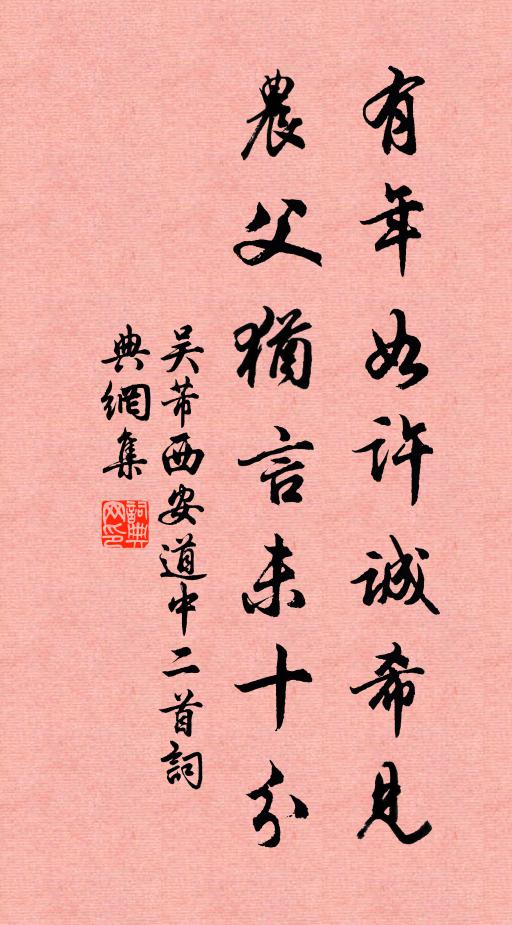 有年如許誠希見
農父猶言未十分
吳芾西安道中二首詞
典網集
詞典網印